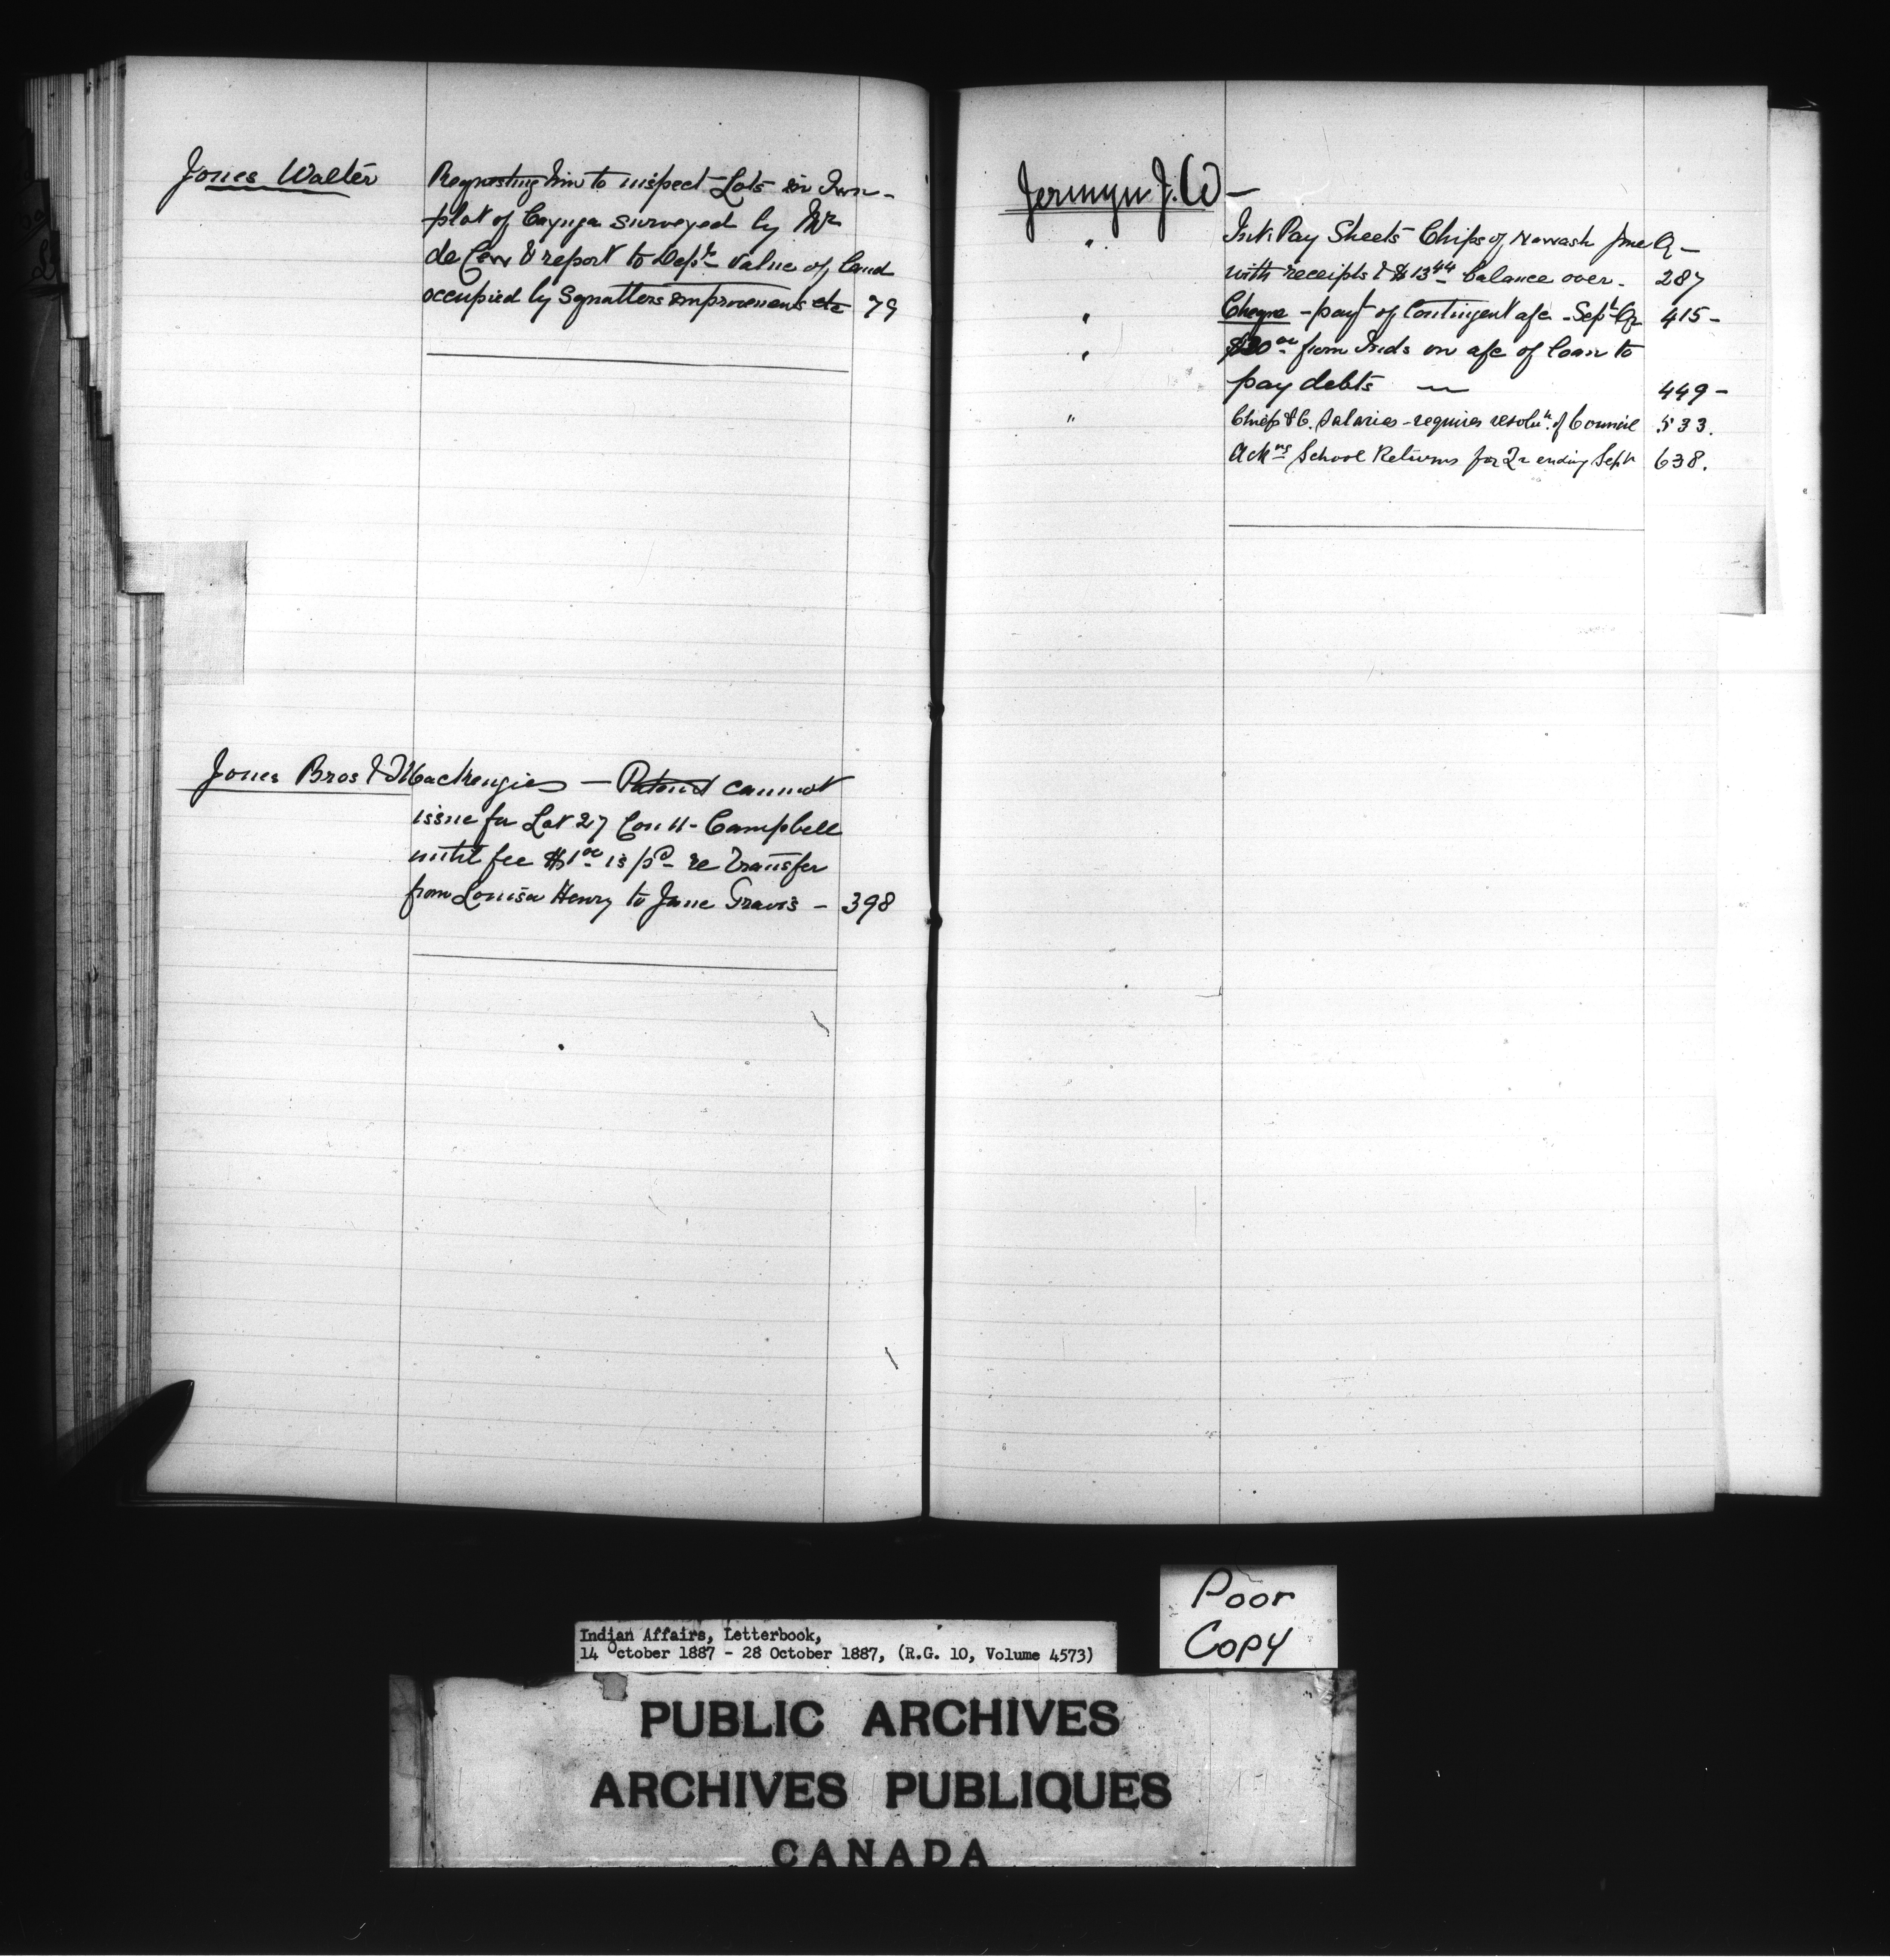 Jones Walter
Requesting him to inspect Lots in Town-
plot of Cayuga surveyed by Mr
de Cew & report to Dept value of land
occupied by Squatters improvements etc 79
Jones Bros & Mackenzie — Patent cannot
issue for Lot 27 Con 11 - Campbell
until fee $1 00 is pd - re Transfer
from Louisa Henry to Jane Travis - 398
Jermyn J. W -
" Pay Sheets Chiefs of Nawash June Q -
with receipts & $13 44 balance over - 287
" Cheque - payt of Contingent a/c - Sept Qr 415 -
" $20 00 from Inds on a/c of loan to
pay debts — 449 -
" Chiefs & C. Salaries - requires resolun. of Council 533.
Ackng School Returns for Qr ending Sept 638.
Poor
Copy
Indian Affairs, Letterbook,
14 October 1887 - 28 October 1887, (R.G. 10, Volume 4573)
PUBLIC ARCHIVES
ARCHIVES PUBLIQUES
CANADA